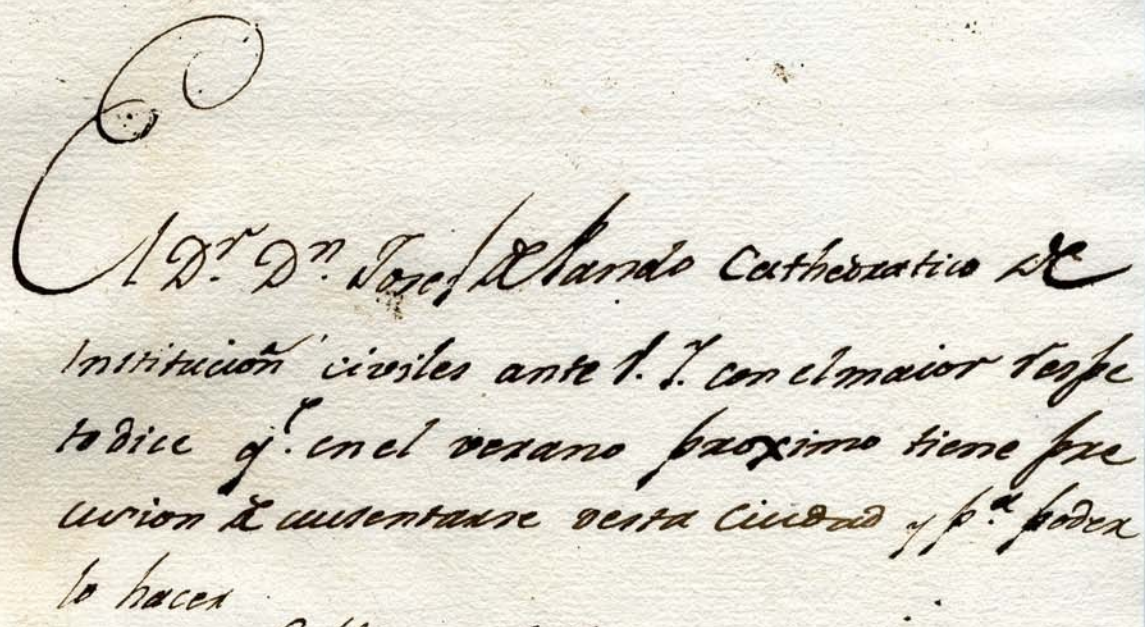 El Dr. Dn. Josef de Pando Cathedratico de
Institucion civiles ante V. I. con el maior respe
to dice qe. en el verano proximo tiene pre
cision de ausentarse desta Ciudad y pa. poder
lo hacer